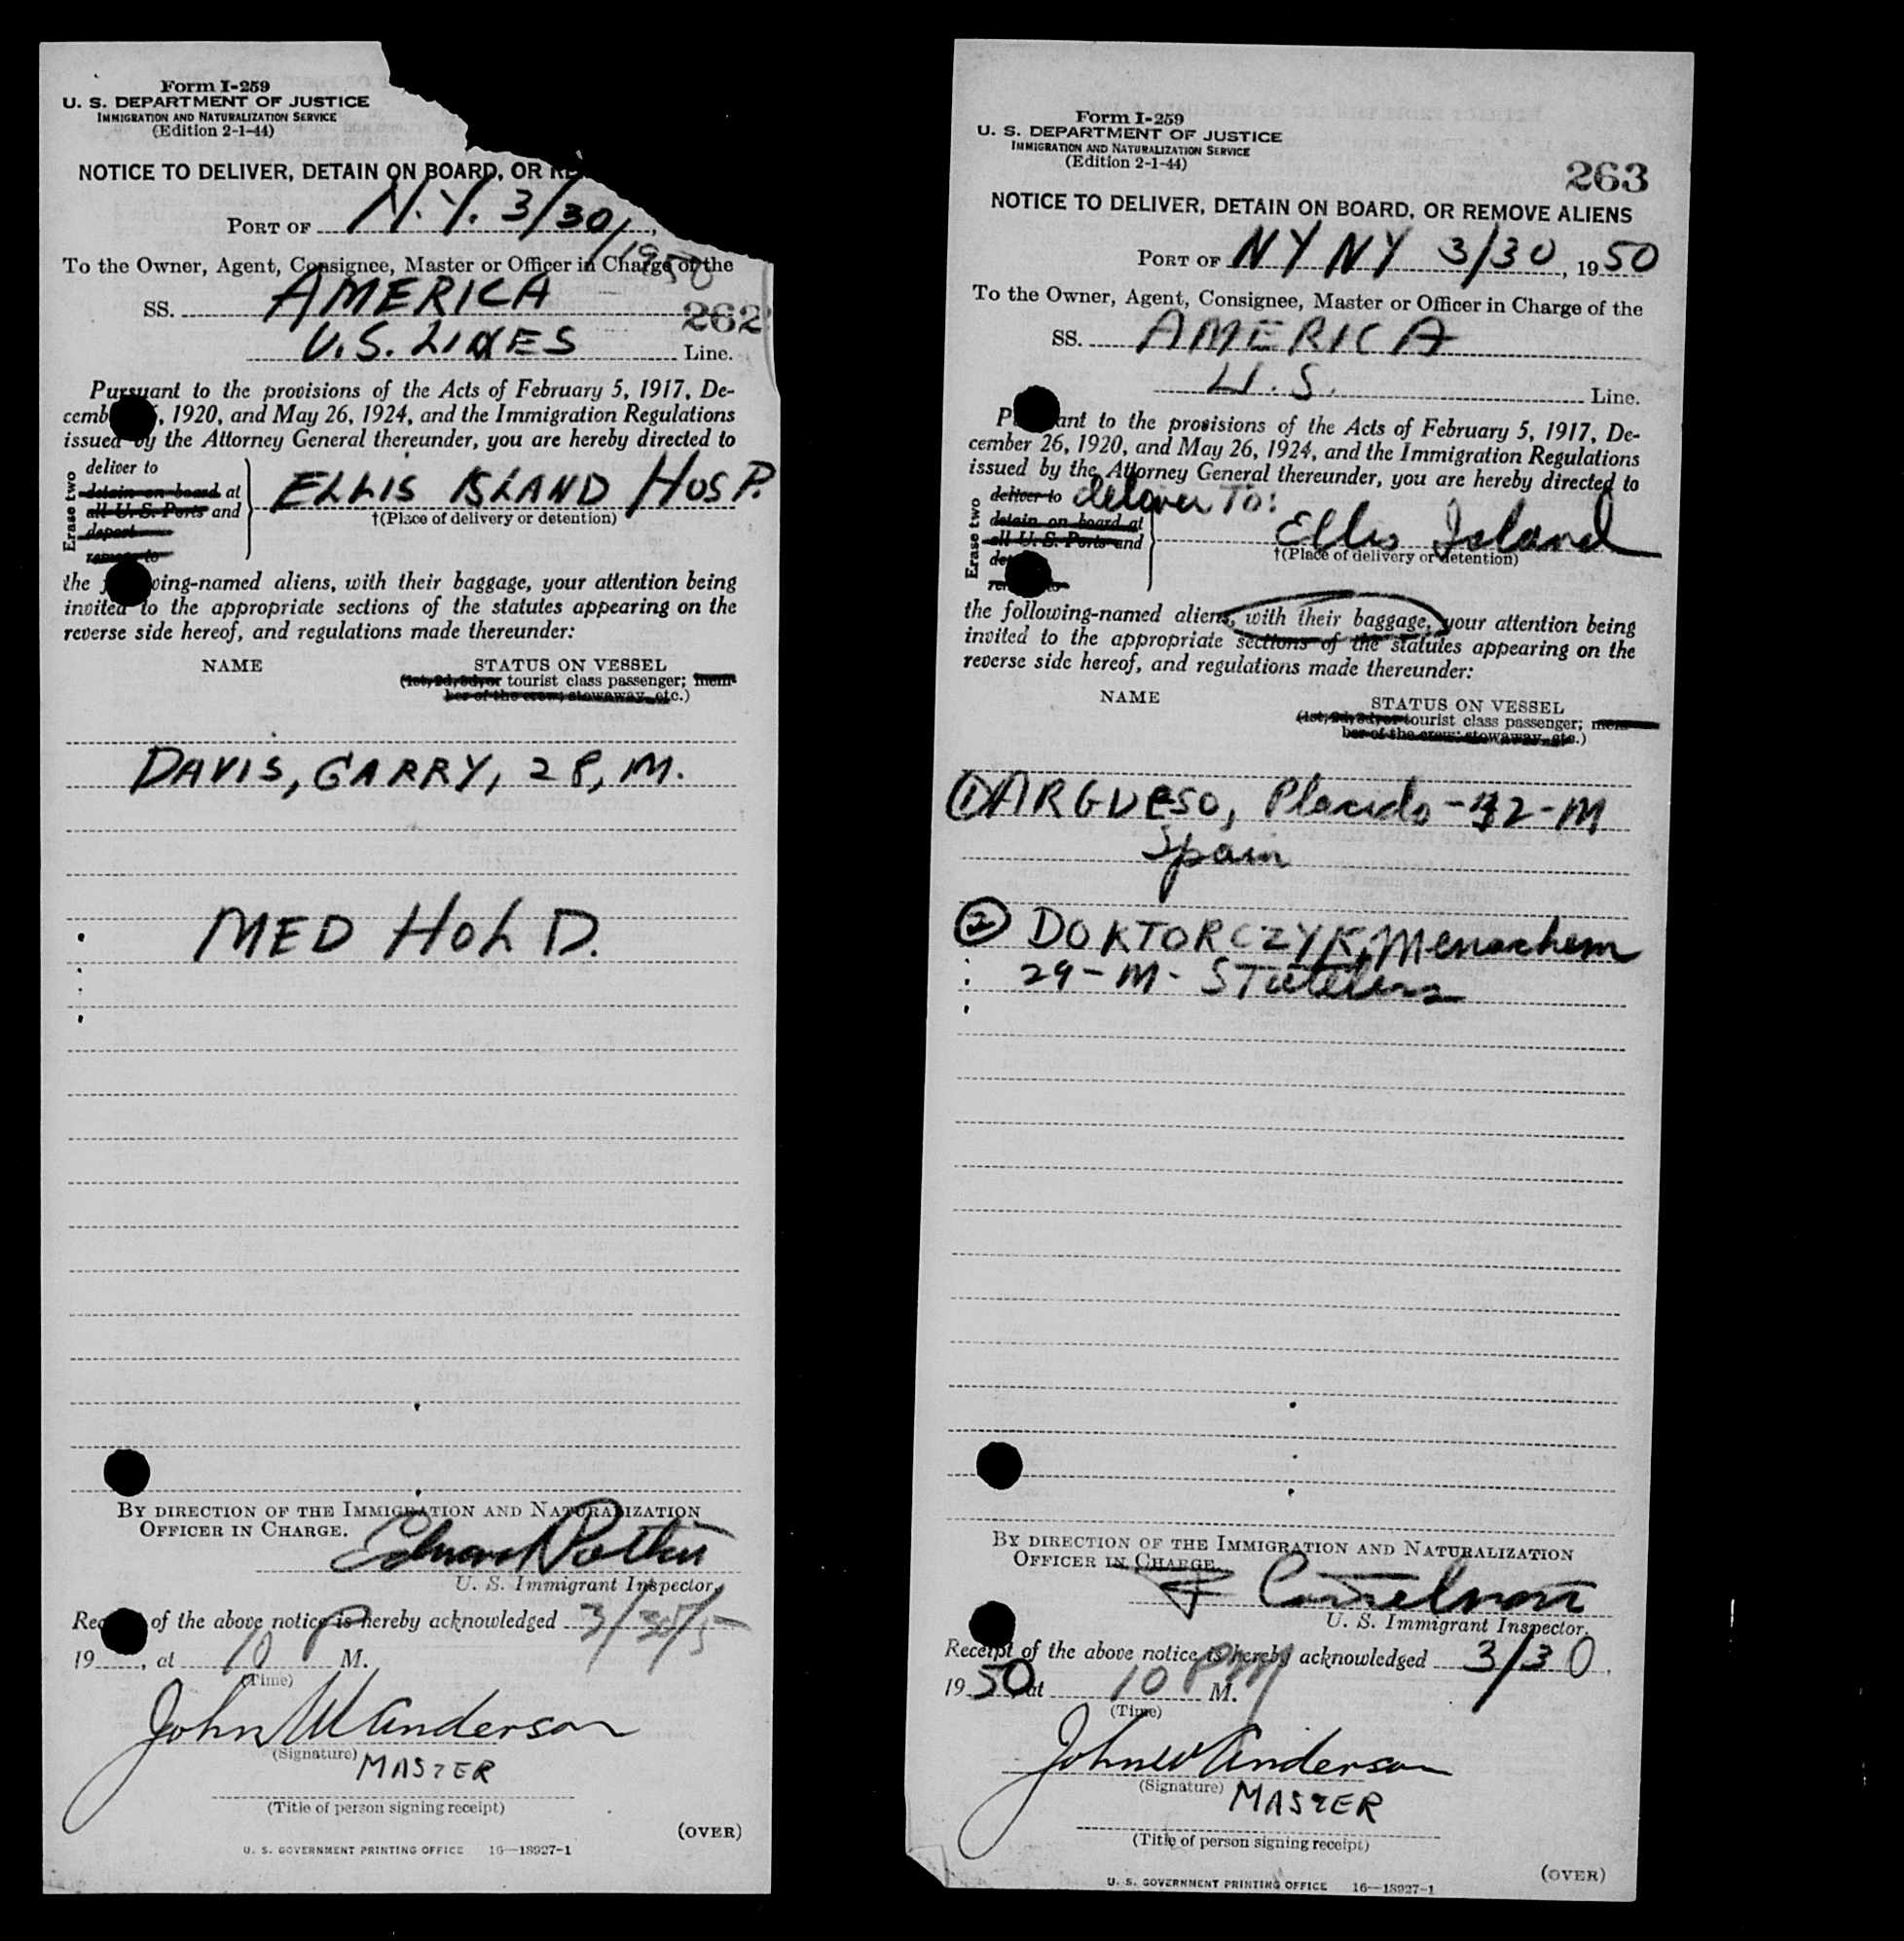 Form I-259
U. S. DEPARTMENT OF JUSTICE
IMMIGRATION AND NATURALIZATION SERVICE
(Edition 2-1-44)
NOTICE TO DELIVER, DETAIN ON BOARD, OR
PORT OF N.Y. 3/30/1950
To the Owner, Agent, Consignee, Master or Officer in Charge of the
SS. AMERICA
262
U.S. LINES Line.
Pursuant to the provisions of the Acts of February 5, 1917, De-
cemb , 1920, and May 26, 1924, and the Immigration Regulations
issued by the Attorney General thereunder, you are hereby directed to
Erase two
deliver to
detain on board at
all U. S. Ports and
depart
remove to
ELLIS ISLAND HOSP.
†(Place of delivery or detention)
the f wing-named aliens, with their baggage, your attention being
invited to the appropriate sections of the statutes appearing on the
reverse side hereof, and regulations made thereunder:
NAME STATUS ON VESSEL
(1st, 2d, 3d, or tourist class passenger; mem-
ber of the crew; stowaway, etc.)
DAVIS, GARRY, 28, M.
MED HOLD.
BY DIRECTION OF THE IMMIGRATION AND NATURALIZATION
OFFICER IN CHARGE.
Edward
U. S. Immigrant Inspector.
Rec of the above notice is hereby acknowledged
19 , at 10 P M.
(Time)
John W Anderson
(Signature)
MASTER
(Title of person signing receipt)
(OVER)
U. S. GOVERNMENT PRINTING OFFICE 16—18927-1
Form I-259
U. S. DEPARTMENT OF JUSTICE
IMMIGRATION AND NATURALIZATION SERVICE
(Edition 2-1-44)
263
NOTICE TO DELIVER, DETAIN ON BOARD, OR REMOVE ALIENS
PORT OF NY NY 3/30, 1950
To the Owner, Agent, Consignee, Master or Officer in Charge of the
SS. AMERICA
U.S. Line.
P ant to the provisions of the Acts of February 5, 1917, De-
cember 26, 1920, and May 26, 1924, and the Immigration Regulations
issued by the Attorney General thereunder, you are hereby directed to
Erase two
deliver to deliver To:
detain on board at
all U. S. Ports and
de
rem to
Ellis Island
†(Place of delivery or detention)
the following-named aliens, with their baggage, your attention being
invited to the appropriate sections of the statutes appearing on the
reverse side hereof, and regulations made thereunder:
NAME STATUS ON VESSEL
(1st, 2d, 3d, or tourist class passenger; mem-
ber of the crew; stowaway, etc.)
① ARGUESO, Placido - 42 - M
Spain
② DOKTORCZYK, Menachem
29 - M - Stateless
BY DIRECTION OF THE IMMIGRATION AND NATURALIZATION
OFFICER IN CHARGE.
U. S. Immigrant Inspector.
Receipt of the above notice is hereby acknowledged 3/30,
1950 at 10 PM M.
(Time)
John W Anderson
(Signature)
MASTER
(Title of person signing receipt)
(OVER)
U. S. GOVERNMENT PRINTING OFFICE 16—18927-1